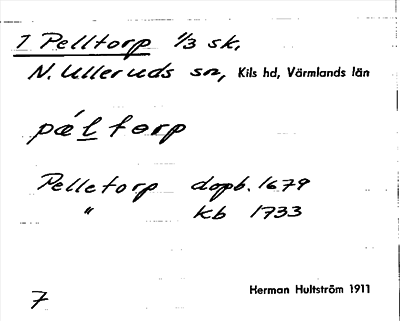 1 Pelltorp 1/3 sk,
N. Ulleruds sn, Kils hd, Värmlands län
pæ´l torp
Pelletorp dopb. 1679
" kb 1733
7 Herman Hultström 1911